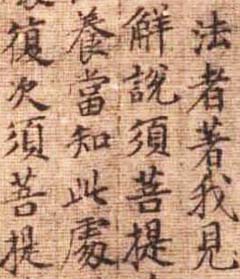 法者著我見
觧說須菩提
養當知此處
復次須菩提